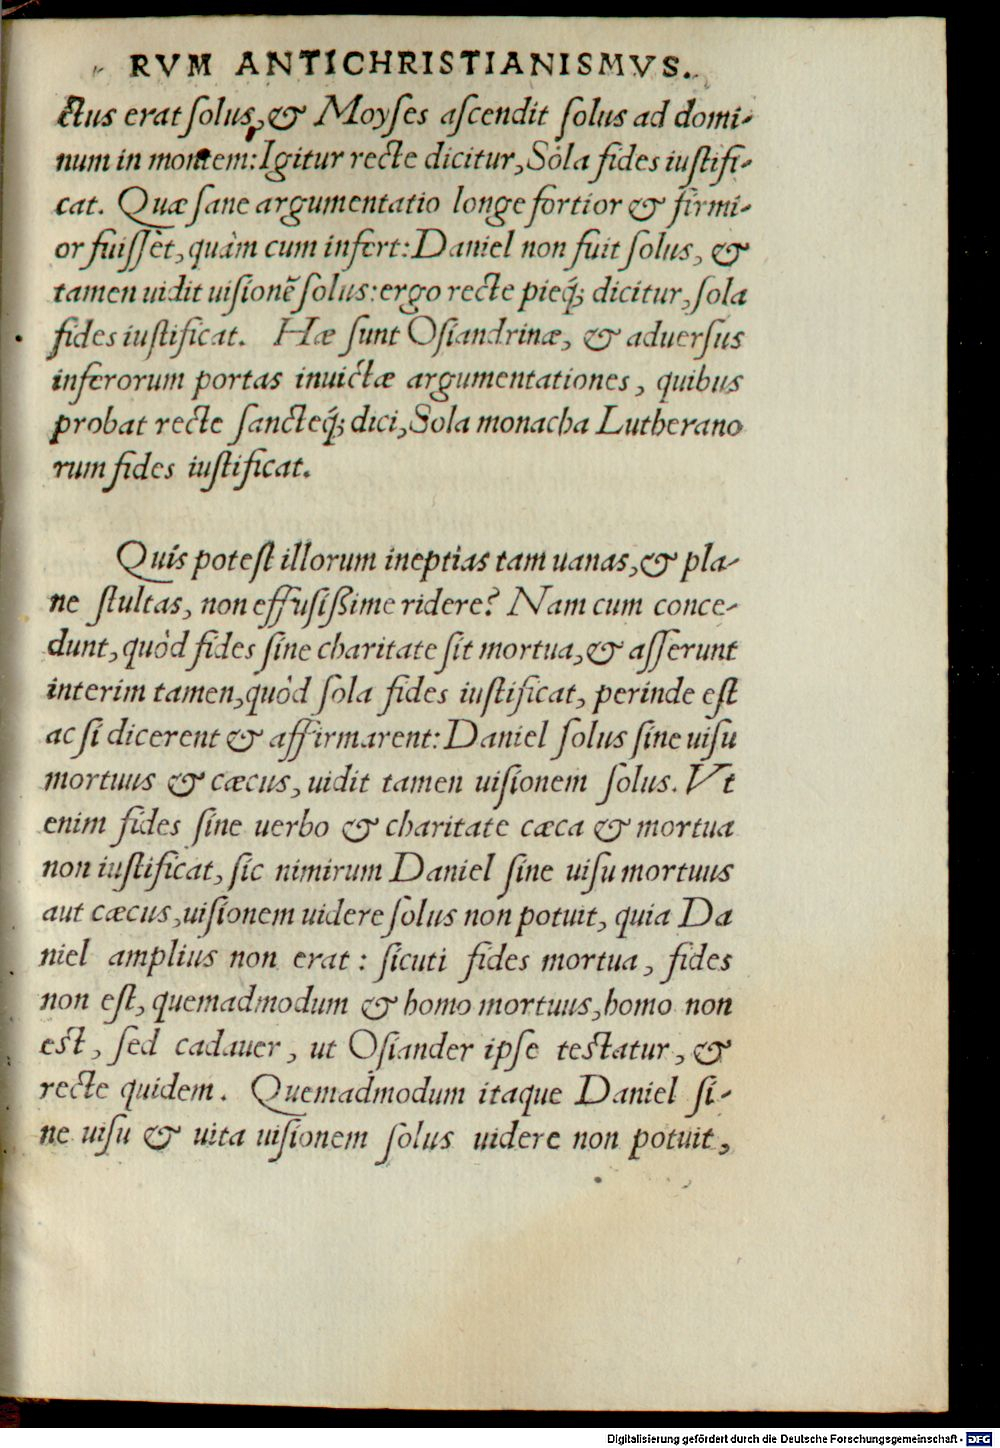 RVM ANTICHRISTIANISMVS.
ctus erat solus, & Moyses ascendit solus ad domi-
num in montem: Igitur recte dicitur, Sola fides iustifi-
cat. Quæ sane argumentatio longe fortior & firmi-
or fuisset, quàm cum infert: Daniel non fuit solus, &
tamen uidit uisionẽ solus: ergo recte pieq́; dicitur, sola
fides iustificat. Hæ sunt Osiandrinæ, & aduersus
inferorum portas inuictæ argumentationes, quibus
probat recte sancteq́; dici, Sola monacha Lutherano
rum fides iustificat.
Quis potest illorum ineptias tam uanas, & pla-
ne stultas, non effusißime ridere? Nam cum conce-
dunt, quòd fides sine charitate sit mortua, & asserunt
interim tamen, quòd sola fides iustificat, perinde est
ac si dicerent & affirmarent: Daniel solus sine uisu
mortuus & cæcus, uidit tamen uisionem solus. Vt
enim fides sine uerbo & charitate cæca & mortua
non iustificat, sic nimirum Daniel sine uisu mortuus
aut cæcus, uisionem uidere solus non potuit, quia Da
niel amplius non erat: sicuti fides mortua, fides
non est, quemadmodum & homo mortuus, homo non
est, sed cadauer, ut Osiander ipse testatur, &
recte quidem. Quemadmodum itaque Daniel si-
ne uisu & uita uisionem solus uidere non potuit,
Digitalisierung gefördert durch die Deutsche Forschungsgemeinschaft - DFG